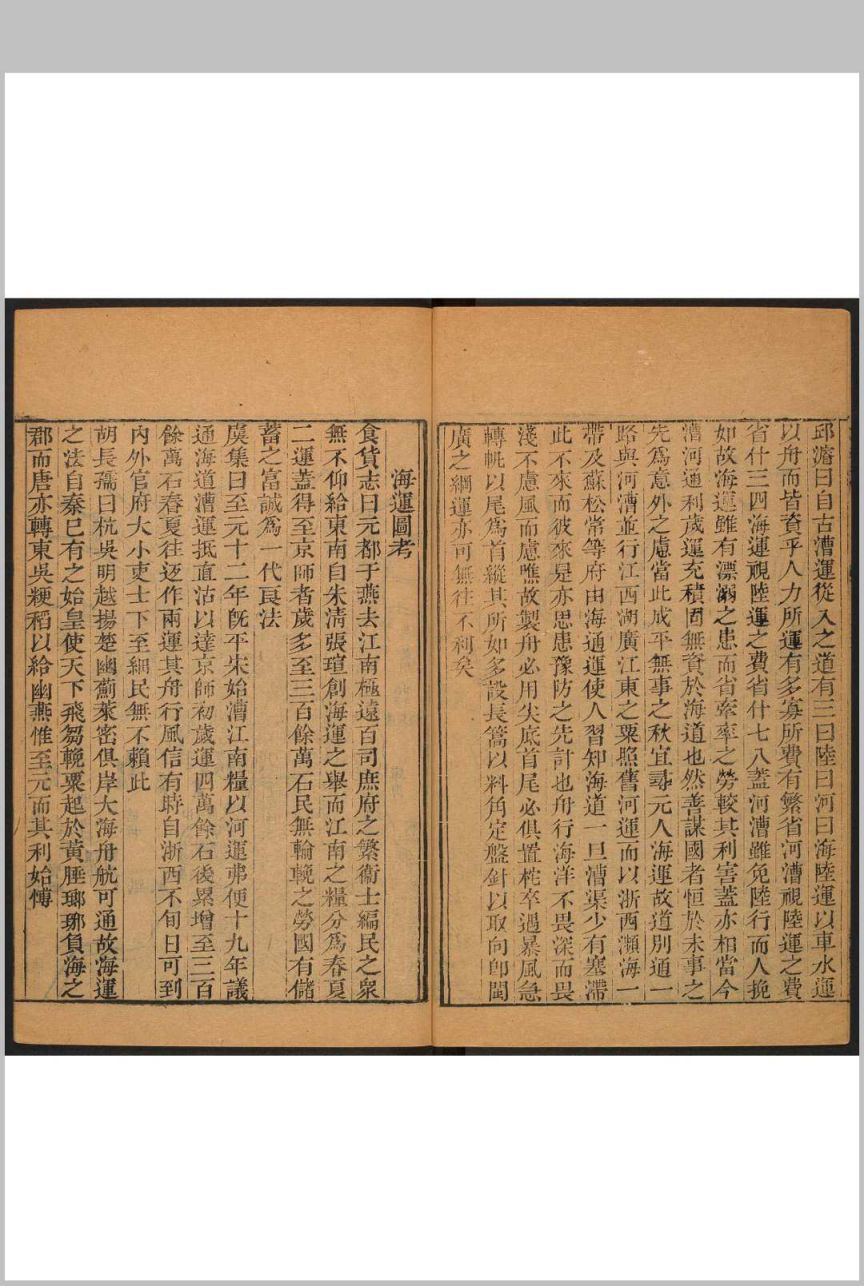 邱濬曰自古漕運從入之道有三曰陸曰河曰海陸運以車水運
以舟而皆資乎人力所運有多寡所費有繁省河漕視陸運之費
省什三四海運視陸運之費省什七八蓋河漕雖免陸行而人挽
如故海運雖有漂溺之患而省牽率之勞較其利害蓋亦相當今
漕河通利歲運充積固無資於海道也然善謀國者恒於未事之
先爲意外之慮當此成平無事之秋宜尋元人海運故道別通一
路與河漕並行江西湖廣江東之粟照舊河運而以浙西瀕海一
帶及蘇松常等府由海通運使人習知海道一旦漕渠少有塞滯
此不來而彼來是亦思患豫防之先計也舟行海洋不畏深而畏
淺不慮風而慮礁故製舟必用尖底首尾必俱置柁卒遇暴風急
轉帆以尾爲首縱其所如多設長篙以料角定盤針以取向卽閩
廣之綱運亦可無往不利矣
海運圖考
食貨志曰元都于燕去江南極遠百司庶府之繁衞士編民之衆
無不仰給東南自朱淸張瑄創海運之舉而江南之糧分爲春夏
二運蓋得至京師者歲多至三百餘萬石民無輸輓之勞國有儲
蓄之富誠爲一代良法
虞集曰至元十二年旣平宋始漕江南糧以河運弗便十九年議
通海道漕運抵直沽以達京師初歲運四萬餘石後累增至三百
餘萬石春夏往迓作兩運其舟行風信有時自浙西不旬日可到
內外官府大小吏士下至細民無不賴此
胡長孺曰杭吳明越揚楚幽薊萊密俱岸大海舟航可通故海運
之法自秦已有之始皇使天下飛芻輓粟起於黃腄瑯琊負海之
郡而唐亦轉東吳粳稻以給幽燕惟至元而其利始慱